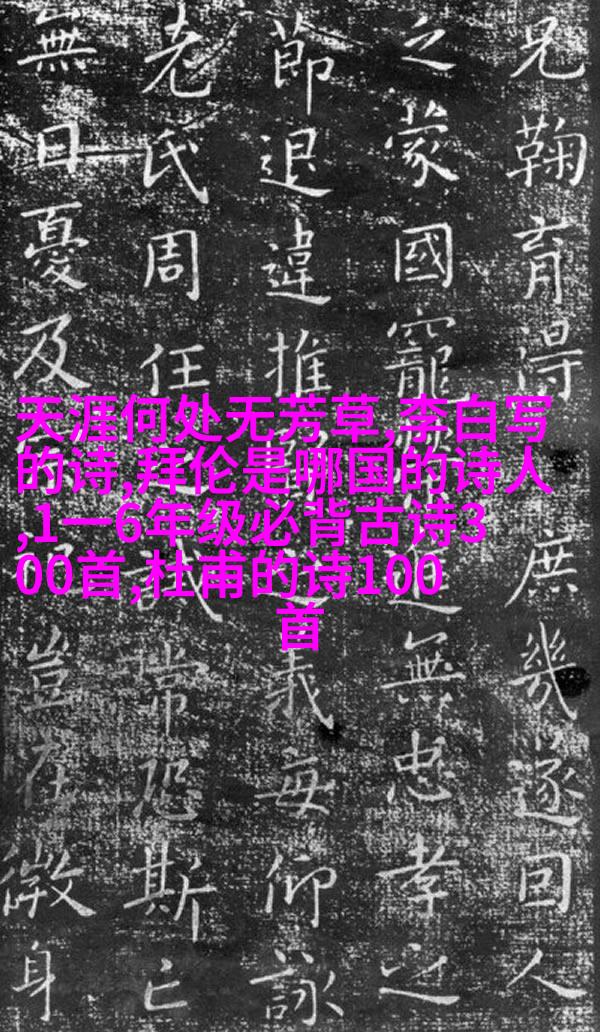 天涯何处无芳草,李白写
的诗,拜伦是哪国的诗人
,1一6年级必背古诗3
00首,杜甫的诗100
首
兄鞠育得庶幾遂回人
之蒙國寵進無忠孝之
節退違推義每仰詠
老氏周任誡常恐斯亡
無日憂及豈在微身